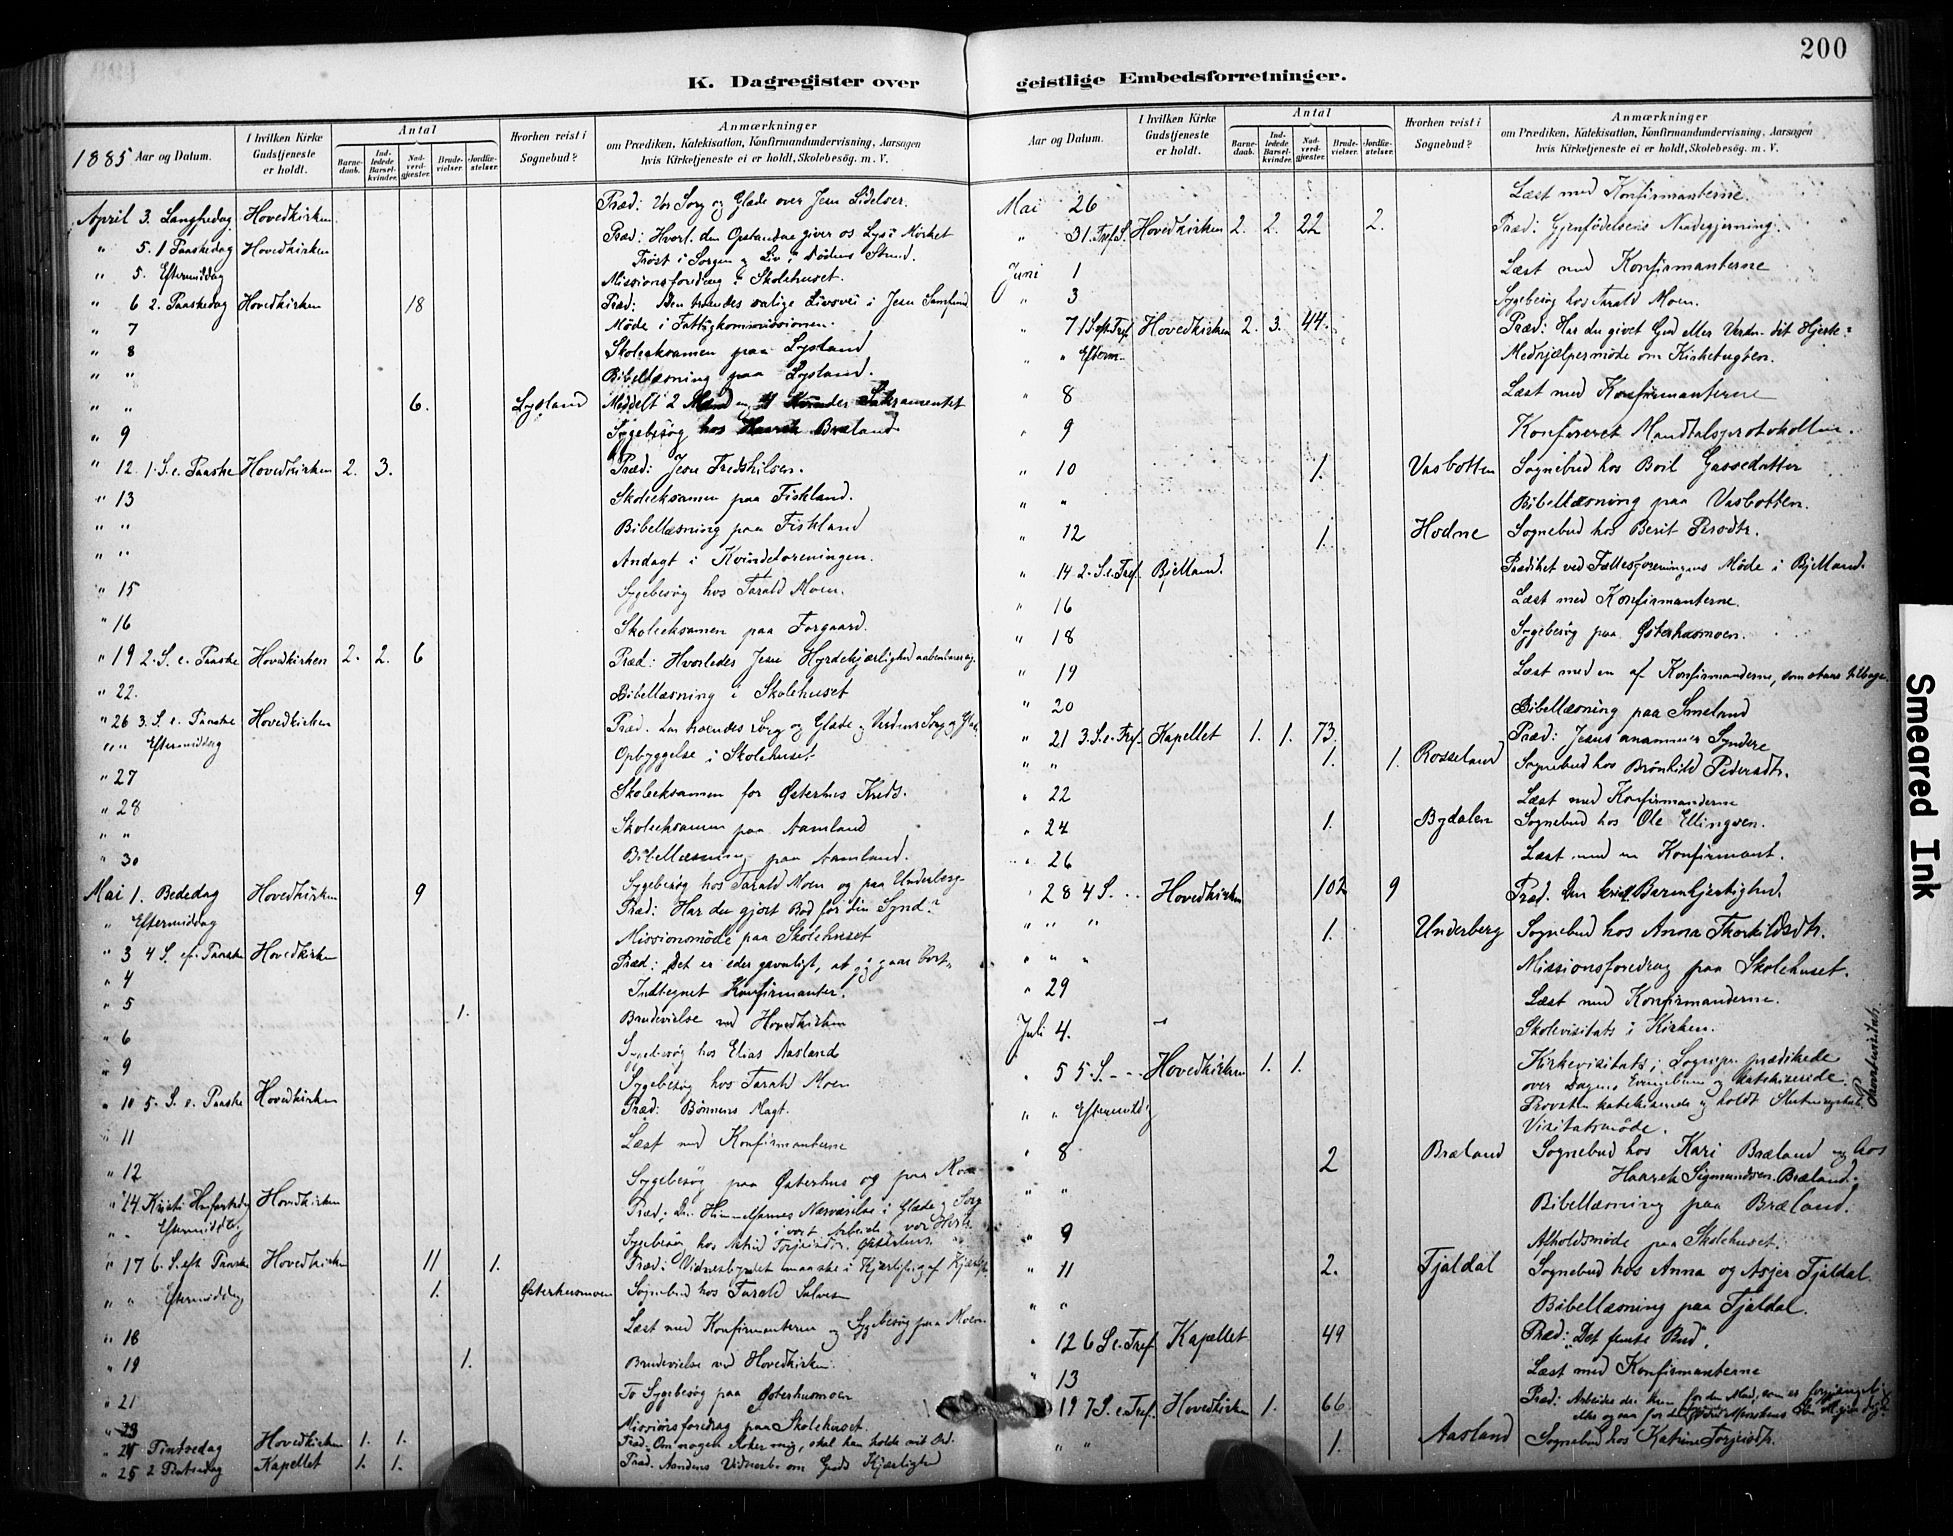 200
K. Dagregister over
geistlige Embedsforretninger.
1885 Aar og Datum.
I hvilken Kirke Gudstjeneste er holdt.
Antal
Barnedaab.
Indledede Barselkvinder.
Nadverdgjæster.
Brudevielser.
Jordfæstelser.
Hvorhen reist i Sognebud?
Anmærkninger
om Prædiken, Katekisation, Konfirmandundervisning, Aarsagen
hvis Kirketjeneste ei er holdt, Skolebesøg. m. V.
April 3. Langfredag Hovedkirken Præd: Vor Sorg og Glæde over Jesu Lidelser.
" 5. 1 Paaskedag Hovedkirken Præd: Hvorl. den Opstandne giver os Lys i Mørket
Trøst i Sorgen og Liv i Dødens Stund.
" 5. Eftermiddag Missionsforedrag i Skolehuset.
" 6 2. Paaskedag Hovedkirken 18 Præd: Den troendes salige Livsvei i Jesu Samfund
" 7 Møde i Fattigkommissionen.
" 8 Skoleeksamen paa Lysland
" " Bibellæsning paa Lysland.
" " 6. Lysland Meddelt 2 Mænd og 4 Kvinder Sakramentet
" 9 Sygebesøg hos Haarek Bræland
" 12. 1. S. e. Paaske Hovedkirken 2. 3. Præd: Jesu Fredshilsen.
" 13 Skoleeksamen paa Fiskland.
" " Bibellæsning paa Fiskland
" " Andagt i Kvindeforeningen.
" 15 Sygebesøg hos Tarald Moen.
" 16 Skoleeksamen paa Forgaard.
" 19 2. S. e. Paaske Hovedkirken 2. 2. 6 Præd: Hvorledes Jesu Hyrdekjærlighed aabenbarer sig.
" 22. Bibellæsning i Skolehuset
" 26 3. S. e. Paaske Hovedkirken Præd. Den troendes Sorg og Glæde og Verdens Sorg og Glæde
" " Eftermiddag Opbyggelse i Skolehuset
" 27 Skoleeksamen for Østerhus Kreds.
" 28 Skoleeksamen paa Aamland
" " Bibellæsning paa Aamland.
" 30 Sygebesøg hos Tarald Moen og paa Underberg
Mai 1. Bededag Hovedkirken 9 Præd: Har du gjort Bod for din Synd?
" Eftermiddag Missionsmøde paa Skolehuset
" 3 4 S. ef. Paaske Hovedkirken Præd: Det er eder gavnligt, at jeg gaar bort
" 4 Indtegnet Konfirmanter.
" 5 1. Brudevielse ved Hovedkirken
" 6 Sygebesøg hos Elias Aasland
" 9 Sygebesøg hos Tarald Moen
" 10 5. S. e. Paaske Hovedkirken Præd: Bønnens Magt.
" 11 Læst med Konfirmanterne
" 12 Sygebesøg paa Østerhus og paa Moen
" 14 Kristi Himmelfartsdag Hovedkirken Præd: Den Himmelfarnes Nærværelse i Glæde og Sorg
i vort Arbeide vor Hvile
" " Eftermiddag Sygebesøg hos Østerhus.
" 17 6. S. eft. Paaske Hovedkirken 11 1. Præd: Vidnesbyrdet maa ske i Kjærlighed af Kjærlighed
" " Eftermiddag 1. Østerhusmoen Sognebud hos Tarald Salves
" 18 Læst med Konfirmanterne og Sygebesøg paa Moen
" 19 1. Brudevielse ved Hovedkirken.
" 21 To Sygebesøg paa Østerhusmoen
" 23 Missionsforedrag paa Skolehuset.
" 24 Pintsedag Hovedkirken 1. 1. Præd. Om nogen elsker mig, skal han holde mit Ord.
" 25 2 Pintsedag Kapellet 1. 1. Præd. Aandens Vidnesb. om Guds Kjærlighed
Aar og Datum.
I hvilken Kirke Gudstjeneste er holdt.
Antal
Barnedaab.
Indledede Barselkvinder.
Nadverdgjæster.
Brudevielser.
Jordfæstelser.
Hvorhen reist i Sognebud?
Anmærkninger
om Prædiken, Katekisation, Konfirmandundervisning, Aarsagen
hvis Kirketjeneste ei er holdt, Skolebesøg. m. V.
Mai 26 Læst med Konfirmanterne.
" 31. Tref. S. Hovedkirken 2. 2. 22 2. Præd: Gjenfødelsens Nødvendiggjerning.
Juni 1 Læst med Konfirmanterne
" 3 Sygebesøg hos Tarald Moen.
" 7 1 S. eft. Tref. Hovedkirken 2. 3. 44. Præd: Har du givet Gud eller Verden dit Hjerte?
" " Efterm. Medhjælpermøde om Kirketugten.
" 8 Læst med Konfirmanterne
" 9 Konfereret Mandtalsprotokollen.
" 10 1. Vasbotten Sognebud hos Boil Gassedatter
" " Bibellæsning paa Vasbotten.
" 12 1. Hodne Sognebud hos Berit Persdtr.
" 14 2. S. e. Tref. Bjelland. Prædiket ved Fællesforeningens Møde i Bjelland.
" 16 Læst med Konfirmanterne.
" 18 Sygebesøg paa Østerhusmoen.
" 19 Læst med en af Konfirmanderne, som staar tilbage.
" 20 Bibellæsning paa Smeland
" 21 3. S. e. Tref. Kapellet 1. 1. 73. Præd: Jesus anammer Syndere
" " 1. 1. Rosseland Sognebud hos Brønhild Pedersdtr.
" 22 Læst med Konfirmanderne
" 24 1. Bydalen Sognebud hos Ole Ellingsen.
" 26 Læst med en Konfirmant.
" 28 4 S. Hovedkirken 102 9 Præd. Den kristl Barmhjertighed.
" " " 1. Underberg Sognebud hos Anna Thorkildsdtr.
" " " Missionsforedrag paa Skolehuset.
" 29 Læst med Konfirmanderne.
Juli 4. Skolevisitats i Kirken.
" 5 5 S. Hovedkirken 1. 1. Kirkevisitats; Sognepr. prædikede
over Dagens Evangelium og katekiserede.
Provsten katekiserede og holdt Slutningstale.
Provstevisitats.
" " Eftermiddag Visitatsmøde.
" 8 2 Bræland Sognebud hos Kari Bræland og hos
Haarek Sigmundsen Bræland.
" " Bibellæsning paa Bræland.
" 9 Afholdsmøde paa Skolehuset.
" 11 2. Fjeldal Sognebud hos Anna og Asjer Fjeldal.
" " Bibellæsning paa Fjeldal.
" 12 6 S. e. Tref. Kapellet 49 Præd: Det femte Bud.
" 13 Læst med Konfirmanterne
" 19 7 S. e. Tref. Hovedkirken 1. 66. Præd: Arbeider der kun for den Mad, som er forgjængelig
" " 1. Aasland Sognebud hos Katrine Torjeisdtr.
Smeared Ink